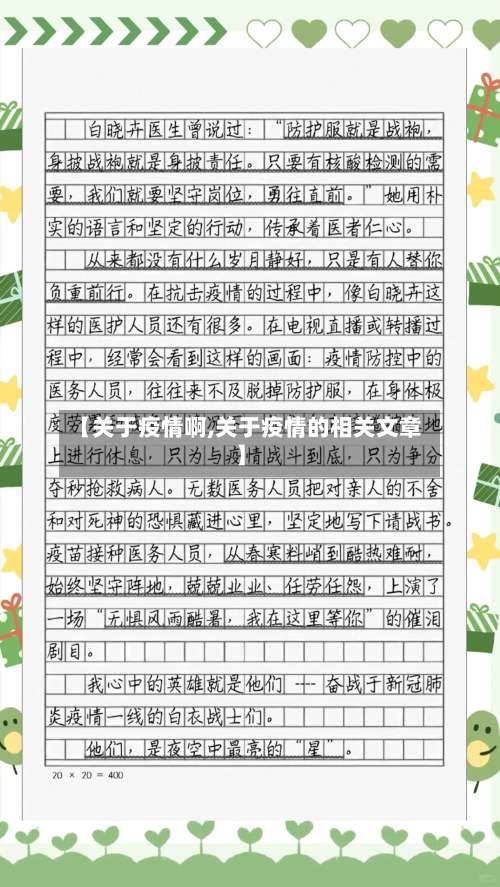 白晓卉医生曾说过：“防护服就是战袍，
身披战袍就是身披责任。只要有核酸检测的需
要，我们就要坚守岗位，勇往直前。”她用朴
实的语言和坚定的行动，传承着医者仁心。
从来都没有什么岁月静好，只是有人替你
负重前行。在抗击疫情的过程中，像白晓卉这
样的医护人员还有很多。在电视直播或转播过
程中，经常会看到这样的画面：疫情防控中的
医务人员，往往来不及脱掉防护服，在身体极
度劳
地
【关于疫情啊,关于疫情的相关文章
】
上进行休息，只为与疫情战斗到底，只为争分
夺秒抢救病人。无数医务人员把对亲人的不舍
和对死神的恐惧藏进心里，坚定地写下请战书。
疫苗接种医务人员，从春寒料峭到酷热难耐，
始终坚守阵地，兢兢业业、任劳任怨，上演了
一场“无惧风雨酷暑，我在这里等你”的催泪
剧目。
我心中的英雄就是他们 ---- 奋战于新冠肺
炎疫情一线的白衣战士们。
他们，是夜空中最亮的“星”。
20 × 20 = 400